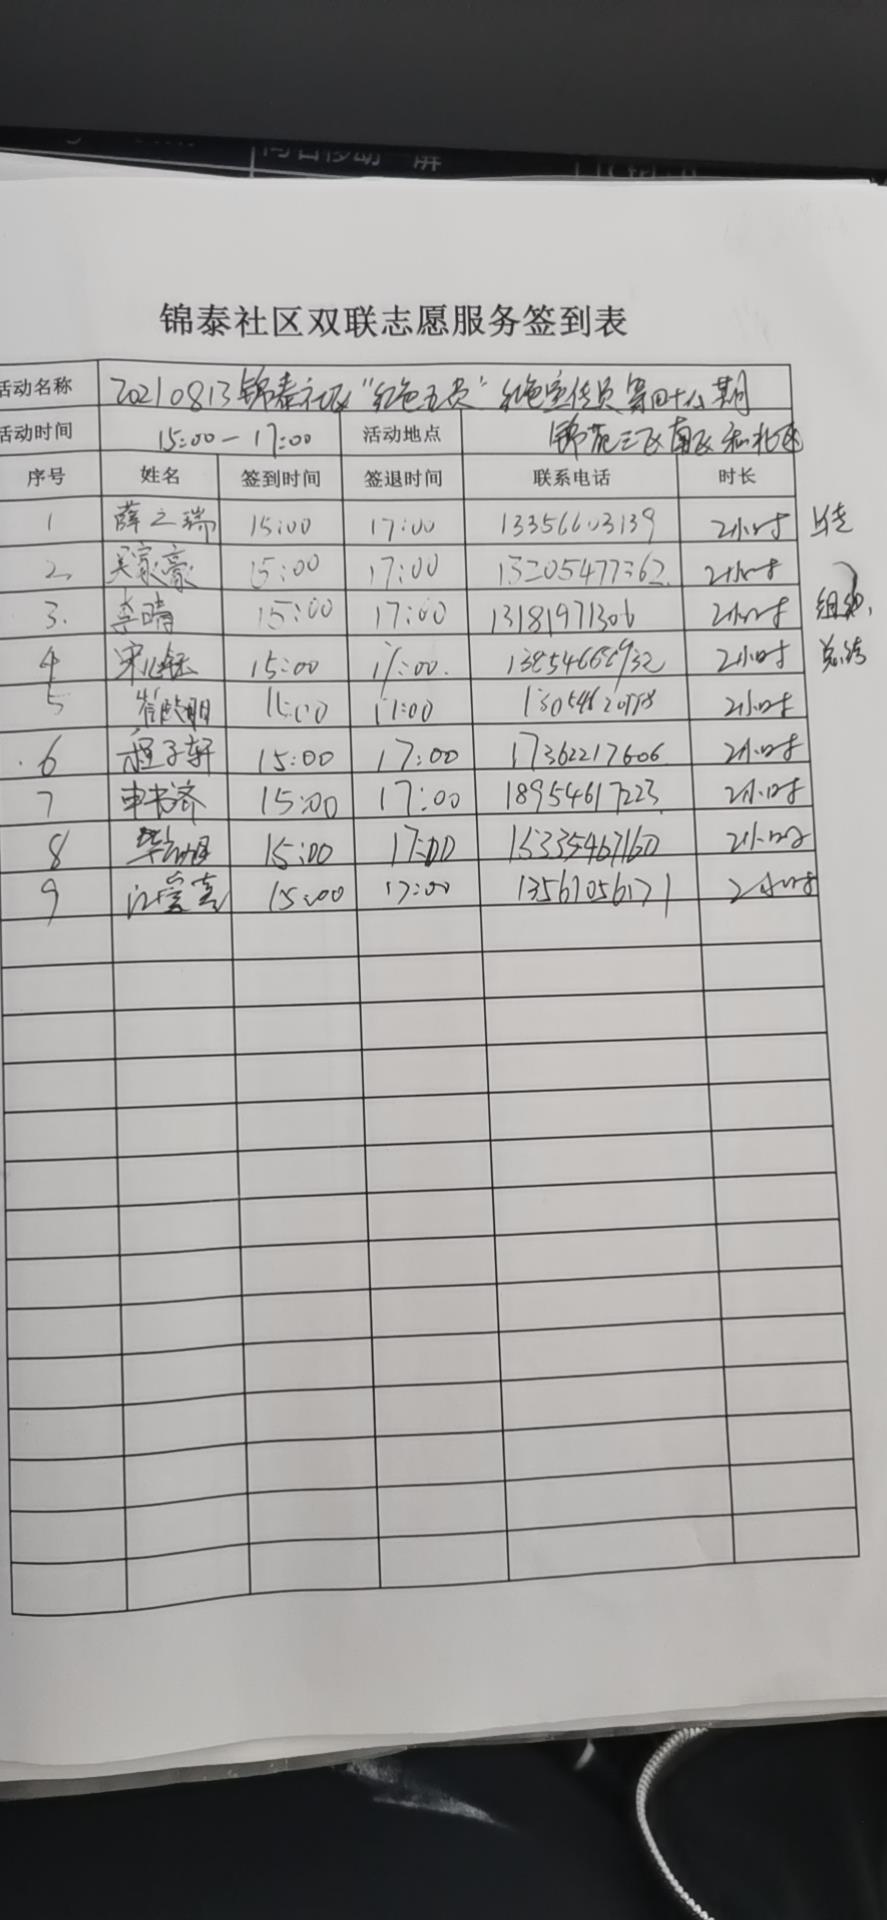 锦泰社区双联志愿服务签到表
活动名称 20210813锦泰社区“红色五员”红色宣传员第四十八期
活动时间 15:00-17:00 活动地点 锦苑三区南区和北区
序号 姓名 签到时间 签退时间 联系电话 时长
1 薛之瑞 15:00 17:00 13356603139 2小时
2 吴家豪 15:00 17:00 13205477362 2小时
3 李晴 15:00 17:00 13181971306 2小时 组织
4 15:00 17:00 2小时 总结
5 15:00 17:00 2小时
6 程子轩 15:00 17:00 17362217606 2小时
7 申书济 15:00 17:00 18954617223 2小时
8 15:00 17:00 15335467160 2小时
9 15:00 17:00 13561056171 2小时